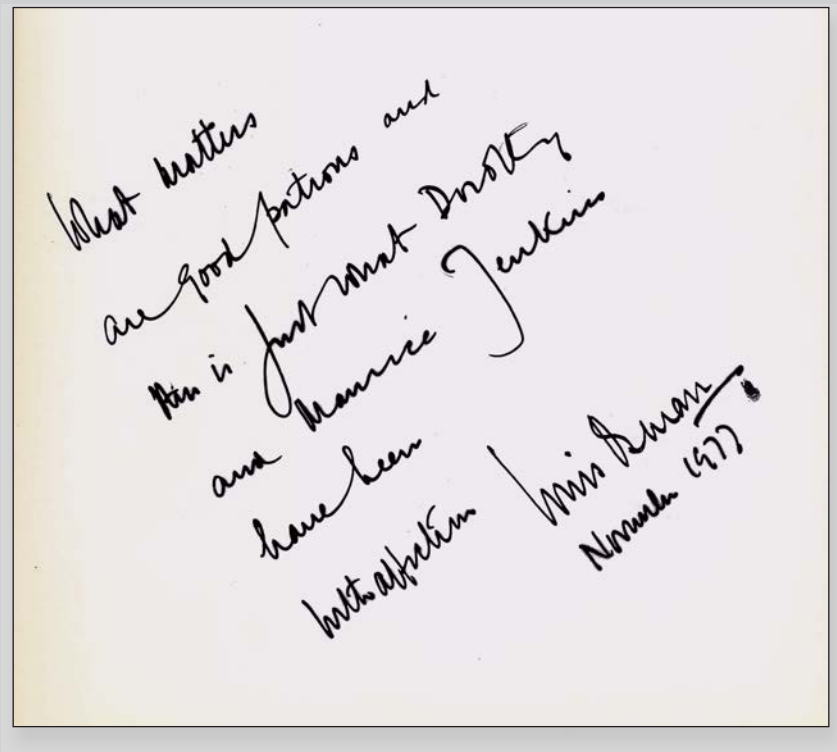 What matters
are good patrons and
this is just what Dorothy
and Maurice Jenkins
have been
with affection Louis Osman
November 1977